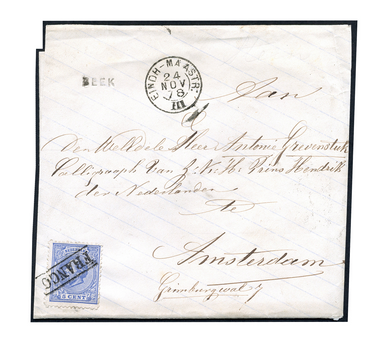 BEEK
EINDH-MAASTR.
24
NOV
78
III
Aan
Den WelEdele Heer Antonie Grevenstuk
Calligraaph van Z. K. H. Prins Hendrik
der Nederlanden
te
Amsterdam
Grimburgwal
FRANCO
5 CENT